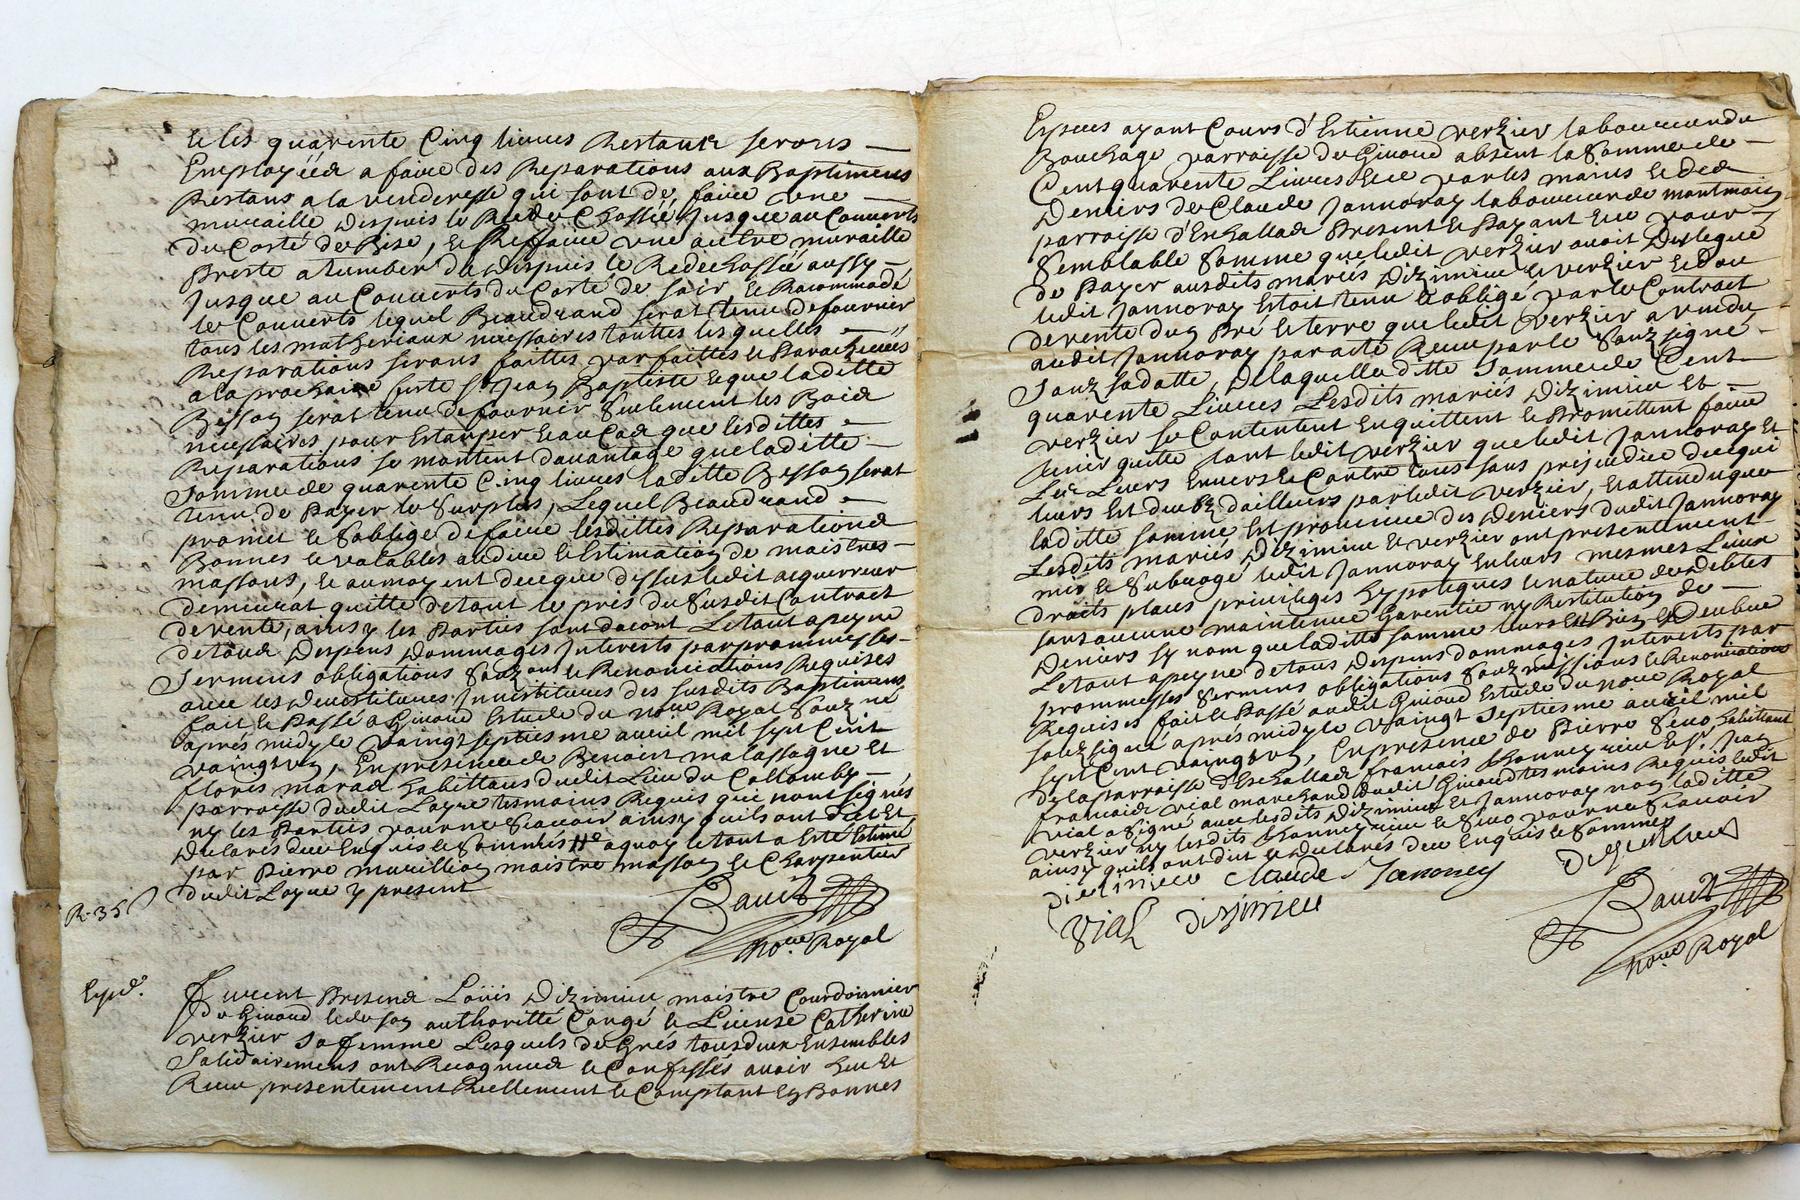 et les quarante Cinq livres Restants serons
Employées a faire des Reparations aux Baptimens
Restans a la venderesse qui sont de faire une
muraille Despuis le Reidechossée Jusque au Couverts
du Costé de Bise, et Reffaire une autre muraille
Preste a tumber du Despuis le Redechossée aussy
Jusque au Couverts du Costé de soir et Racommodé
les Couverts lequel Beaudrand serat tenu de fournir
tous les matheriaux nessaires touttes lesquelles
Reparations serons faittes parfaittes et Parachevées
a la prochaine feste St Jean Baptiste et que laditte
Bessoy serat tenu de fournir seulement les Bois
necessaires pour Estamper et au Cas que lesdittes
Reparations se montent davantage que laditte
Somme de quarente Cinq livres laditte Bessoy serat
tenu de Payer le Surplus, Lequel Beaudrand
promet et S'oblige de faire lesdittes Reparations
Bonnes et valables au dire et Estimation de maistres
massons, et au moyent de ce que dessus ledit acquerreur
demeurat quitte de tout le pris du Susdit Contract
de vente, ainsy les Parties sont dacort Le tout a peyne
de tous Despens Dommages Interests par prommesses
Sermens obligations Renonciations Requises
avec les Devestitures Investitures des susdits Baptimens
fait et Passé a Givord Estude du nore Royal Souz né
aprés midy le vaingt septiesme avril mil sept Cent
vaingt , En presence de Benoist malassagne Et
flores maras habittans dudit Lieu du Collomby
parroisse dudit Loyre tesmoins Requis qui nont signés
ny les Parties pour ne Sçavoir ainsy quils ont dit Et
Declarés deue Enquis et Sommés a quoy le tout a Esté Estimé
par Pierre maistre massoy et Charpentier
dudit Loyre y present
R. 35 s
nore Royal
Expé.
Furent Presens Loüis Dizimieu maistre Courdonnier
de Givord et de son authoritté Congé et License Catherine
verzier sa femme Lesquels de Grés tous deux Ensembles
Solidairemens ont Recogneus et Confessés avoir Heu Et
Receu presentement Reellement et Comptant en Bonnes
Especes ayant Cours d'Estienne verzier laboureur du
Bouchage parroisse de Givord absent la Somme de
Cent quarente Livres par les mains et des
Deniers de Claude Jannoray laboureur de montmain
parroisse d'Eschallas Present et Payant pour
Semblable Somme que ledit verzier avoit Delegué
de Payer ausdits mariés Dizimieu et verzier
ledit Jannoray Estoit tenu et obligé par le Contract
de vente du Pré et terre que ledit verzier a vendu
audit Jannoray par acte Receu par le Souz signé
Souz sa datte, De laquelle ditte Somme de Cent
quarente Livres Lesdits mariés Dizimieu Et
verzier se Contentent Enquittent et Promettent faire
tenir quitte tant ledit verzier que ledit Jannoray Et
Envers Et Contre tous sans prejudice de ce qui
leurs Est deubz dailleurs par ledit verzier, Et attendu que
laditte somme Est provenue des Deniers dudit Jannoray
Lesdits mariés Dizimieu et verzier ont presentement
mis et Subrogé ledit Jannoray En leurs mesmes Lieux
droits places privileges hypoteques et nature de Debtes
sans aucune maintenue Garentie ny Restitution de
Deniers sy nom que laditte somme leurs Est Bien et Deubue
Le tout a peyne de tous Despens dommages Interests par
prommesses Sermens obligations Souzmissions et Renonciations
Requises fait et Passé audit Givord Estude du nore Royal
soubzsigné aprés midy le vaingt septiesme avril mil
sept Cent vaingt , En presence de Pierre habittant
de la parroisse d'Eschallas francois Et Sr Jean
francois vial marchand dudit Givord tesmoins Requis ledit
vial a Signé avec lesdits Dizimieu Et Jannoray non laditte
verzier ny lesdits pour ne Scavoir
ainsy quils ont dit et Declarés deue Enquis et Sommés
dizimieu Claude Janorey
vial dizimieu
nore Royal